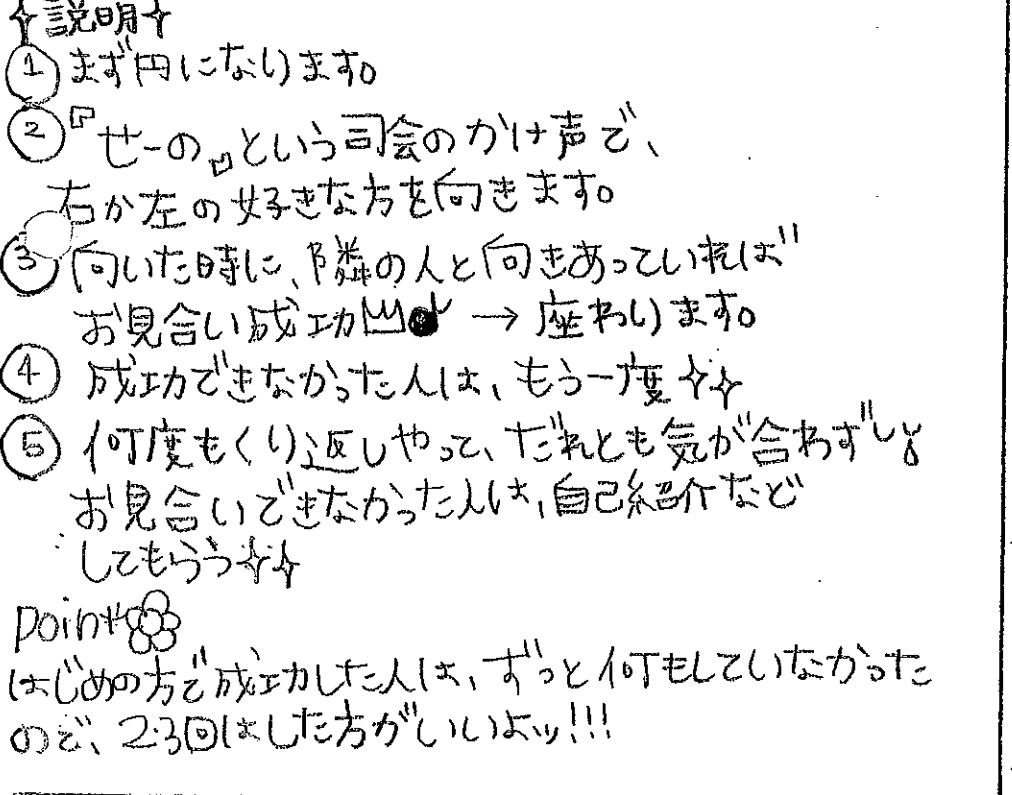 ✧説明✧
① まず円になります。
② 『せーの』という司会のかけ声で、
右か左の好きな方を向きます。
③ 向いた時に、隣の人と向きあっていれば
お見合い成功 → 座わります。
④ 成功できなかった人は、もう一度✧✧
⑤ 何度もくり返しやって、だれとも気が合わず
お見合いできなかった人は、自己紹介など
してもらう✧✧
point
はじめの方で成功した人は、ずっと何もしていなかった
ので、2.3回はした方がいいよッ!!!